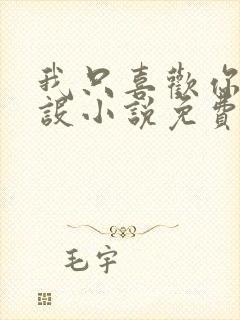 我只喜歡你
設小說免費
毛宇